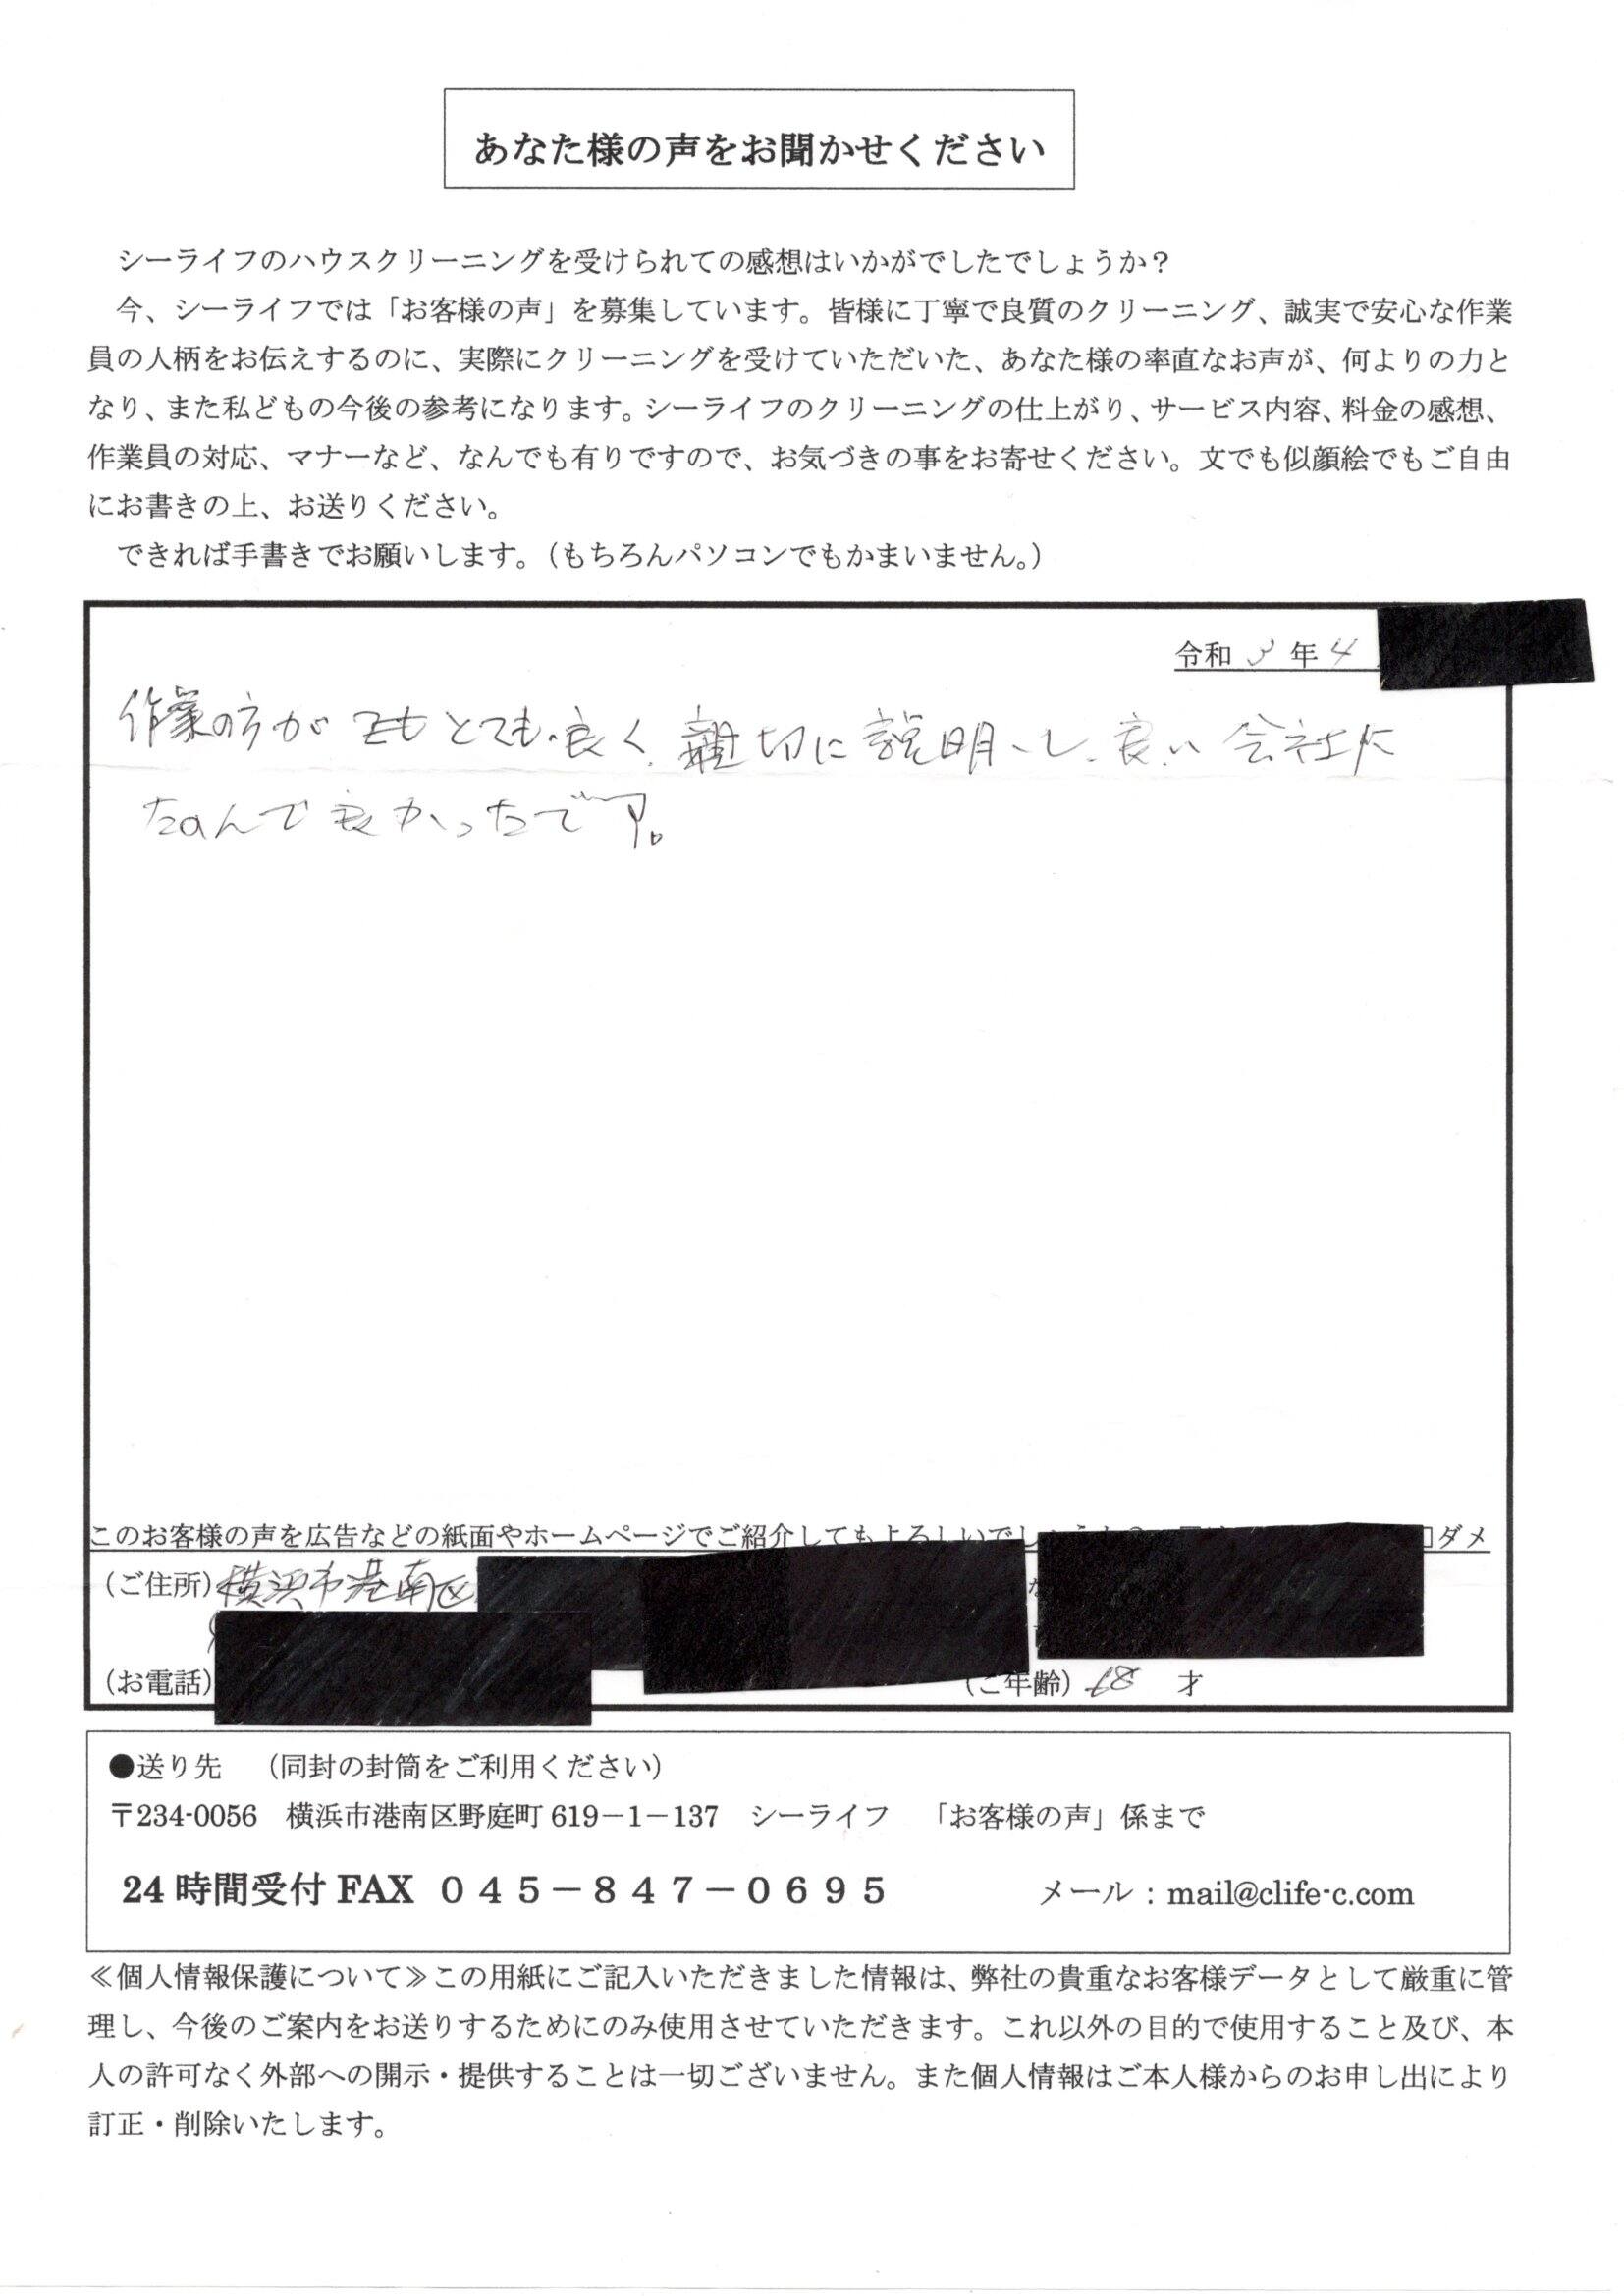 あなた様の声をお聞かせください
シーライフのハウスクリーニングを受けられての感想はいかがでしたでしょうか？
今、シーライフでは「お客様の声」を募集しています。皆様に丁寧で良質のクリーニング、誠実で安心な作業
員の人柄をお伝えするのに、実際にクリーニングを受けていただいた、あなた様の率直なお声が、何よりの力と
なり、また私どもの今後の参考になります。シーライフのクリーニングの仕上がり、サービス内容、料金の感想、
作業員の対応、マナーなど、なんでも有りですので、お気づきの事をお寄せください。文でも似顔絵でもご自由
にお書きの上、お送りください。
できれば手書きでお願いします。（もちろんパソコンでもかまいません。）
令和 3 年 4
作業の方が とても良く、親切に説明し、良い会社に
たのんで良かったです。
このお客様の声を広告などの紙面やホームページでご紹介してもよろしいでし □ダメ
（ご住所）横浜市港南区
（お電話） （ご年齢）68 才
●送り先 （同封の封筒をご利用ください）
〒234-0056 横浜市港南区野庭町 619－1－137 シーライフ 「お客様の声」係まで
24 時間受付 FAX ０４５－８４７－０６９５ メール：mail@clife-c.com
≪個人情報保護について≫この用紙にご記入いただきました情報は、弊社の貴重なお客様データとして厳重に管
理し、今後のご案内をお送りするためにのみ使用させていただきます。これ以外の目的で使用すること及び、本
人の許可なく外部への開示・提供することは一切ございません。また個人情報はご本人様からのお申し出により
訂正・削除いたします。